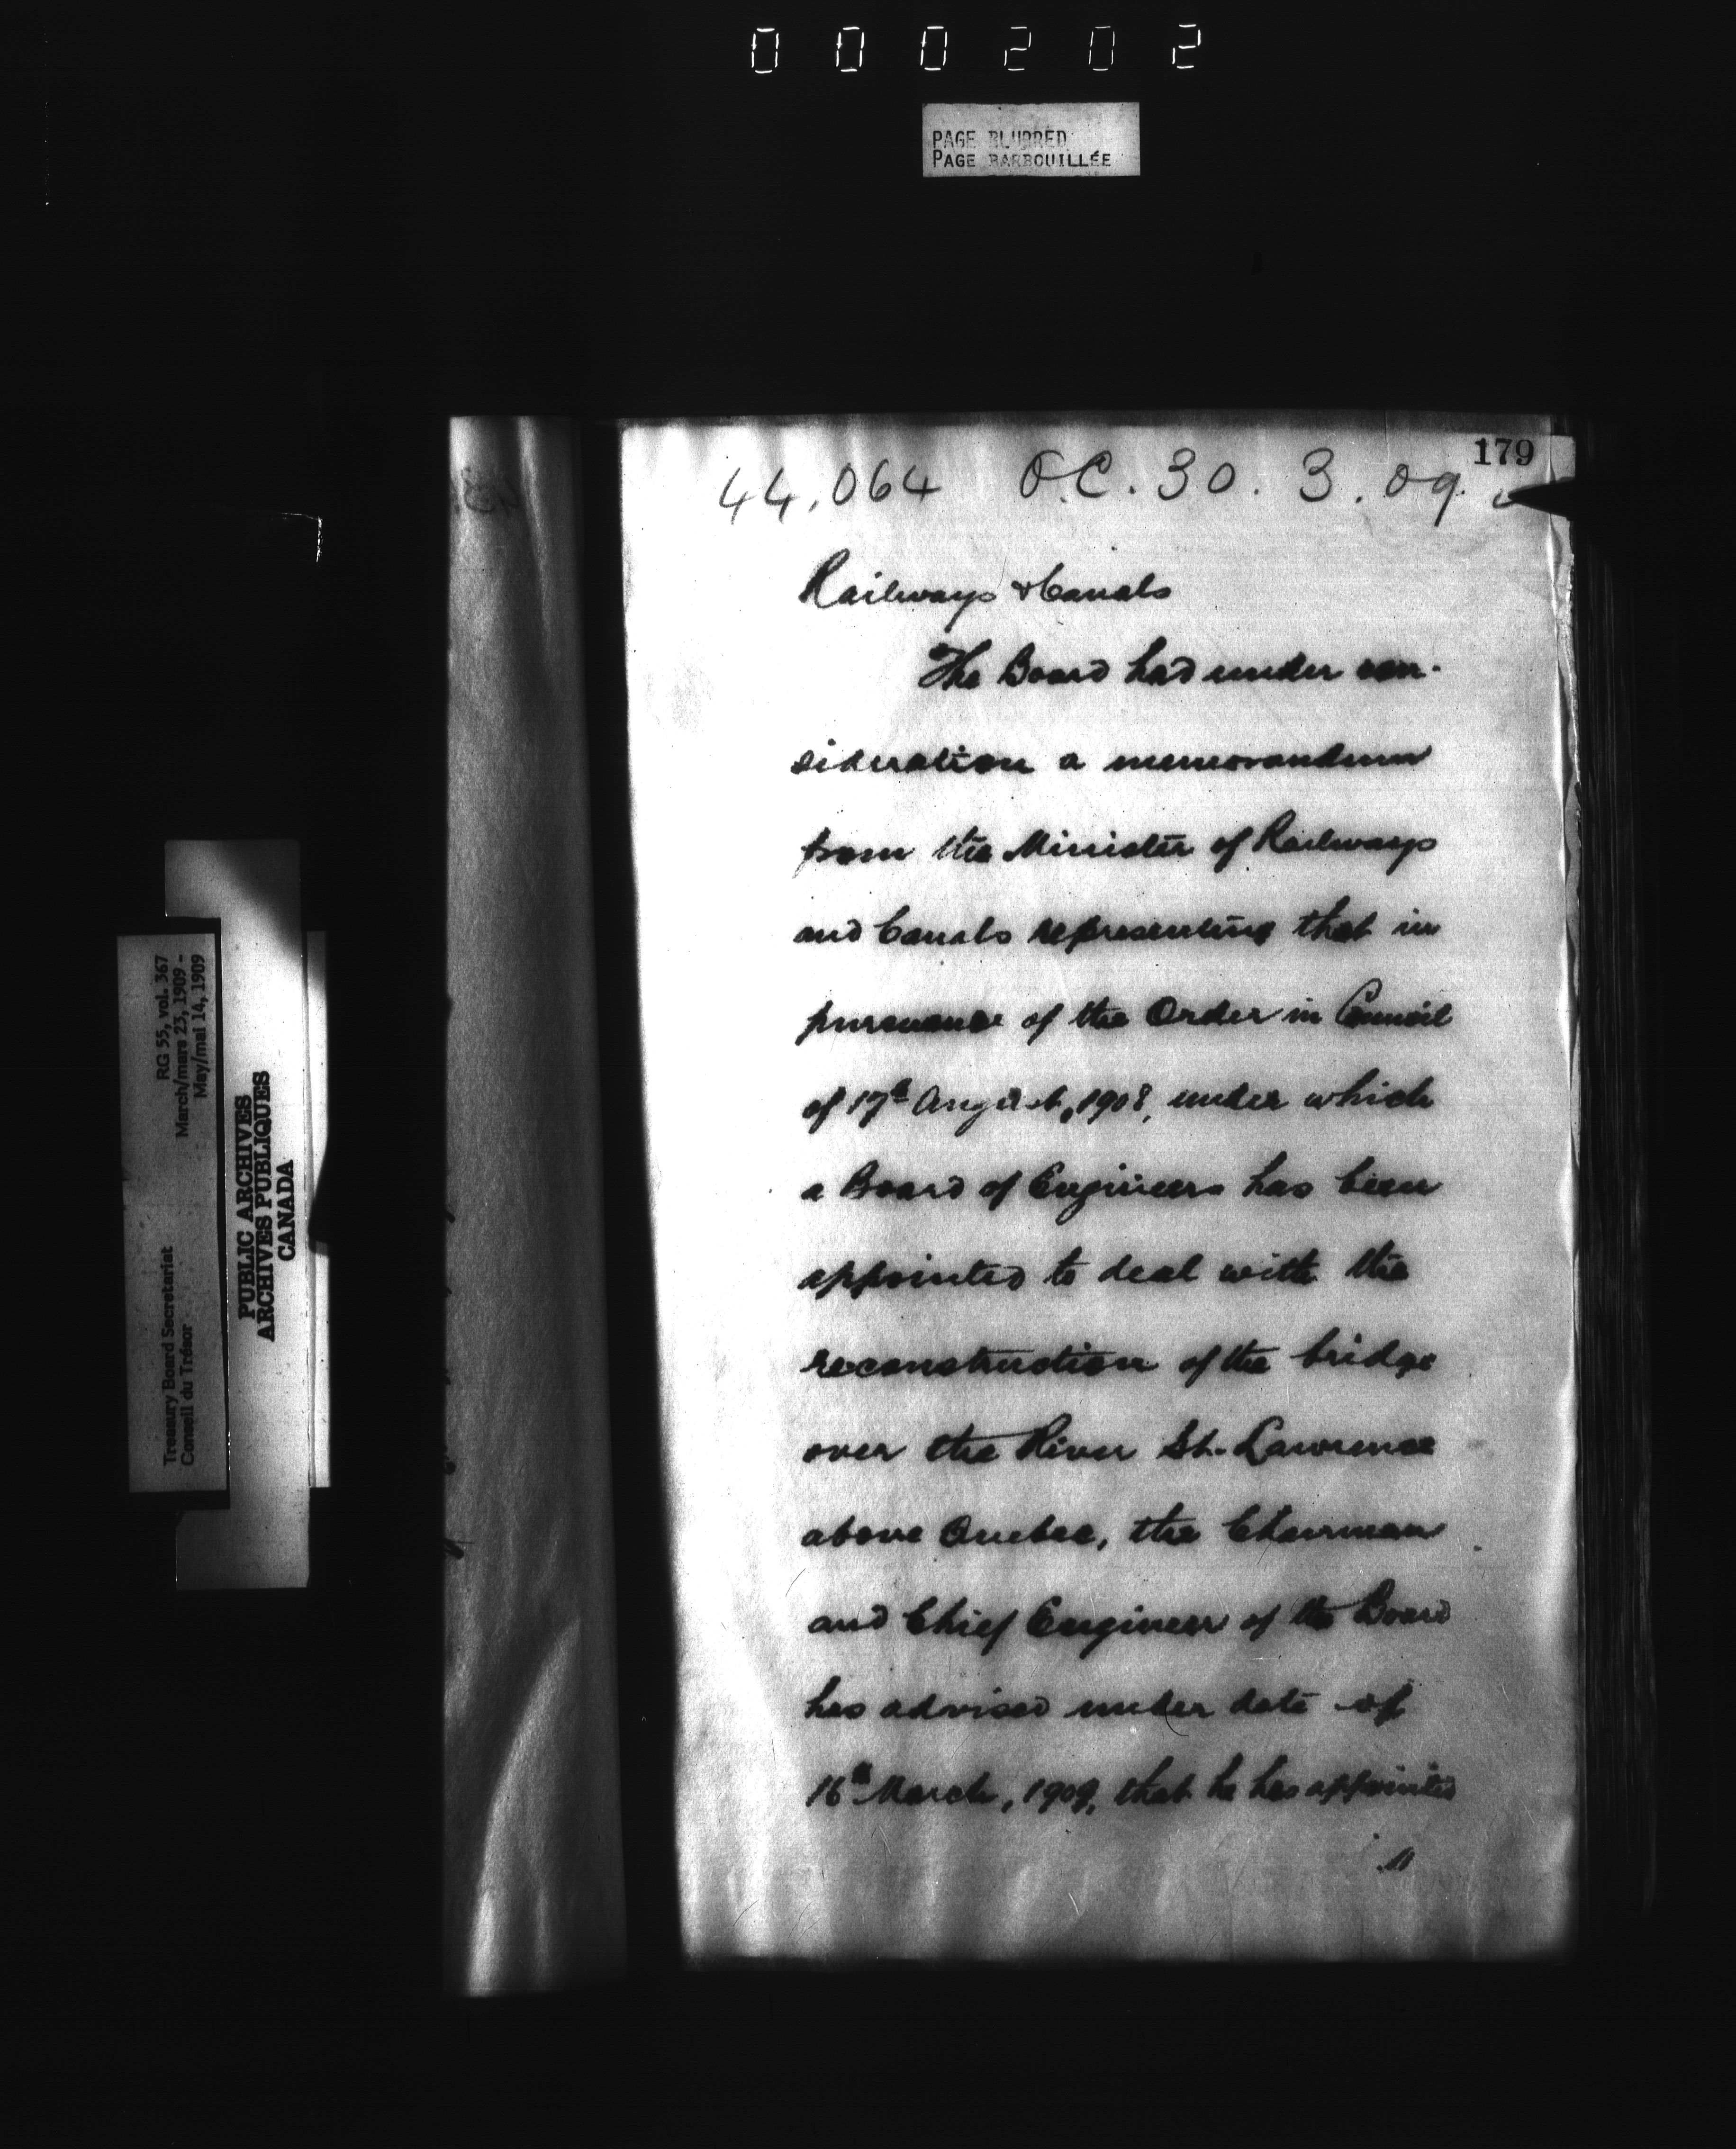 000202
PAGE BLURRED
PAGE BARBOUILLÉE
179
44,064 O.C. 30. 3. 09.
Railways & Canals
The Board had under con-
sideration a memorandum
from the Minister of Railways
and Canals representing that in
pursuance of the Order in Council
of 17th August, 1908, under which
a Board of Engineers has been
appointed to deal with the
reconstruction of the bridge
over the River St. Lawrence
above Quebec, the Chairman
and Chief Engineer of the Board
has advised under date of
16th March, 1909, that he has appointed
RG 55, vol. 367
March/mars 23, 1909 -
May/mai 14, 1909
Treasury Board Secretariat
Conseil du Trésor
PUBLIC ARCHIVES
ARCHIVES PUBLIQUES
CANADA